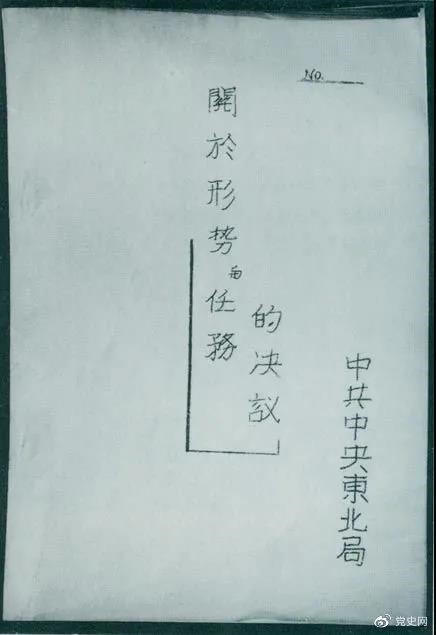 No.
關於形势和任務
的决议
中共中央東北局
党史网